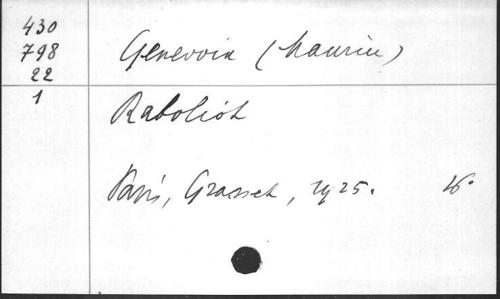 430
798
22
1
Genevoix (Maurice)
Raboliot
Paris, Grasset, 1925. 16°